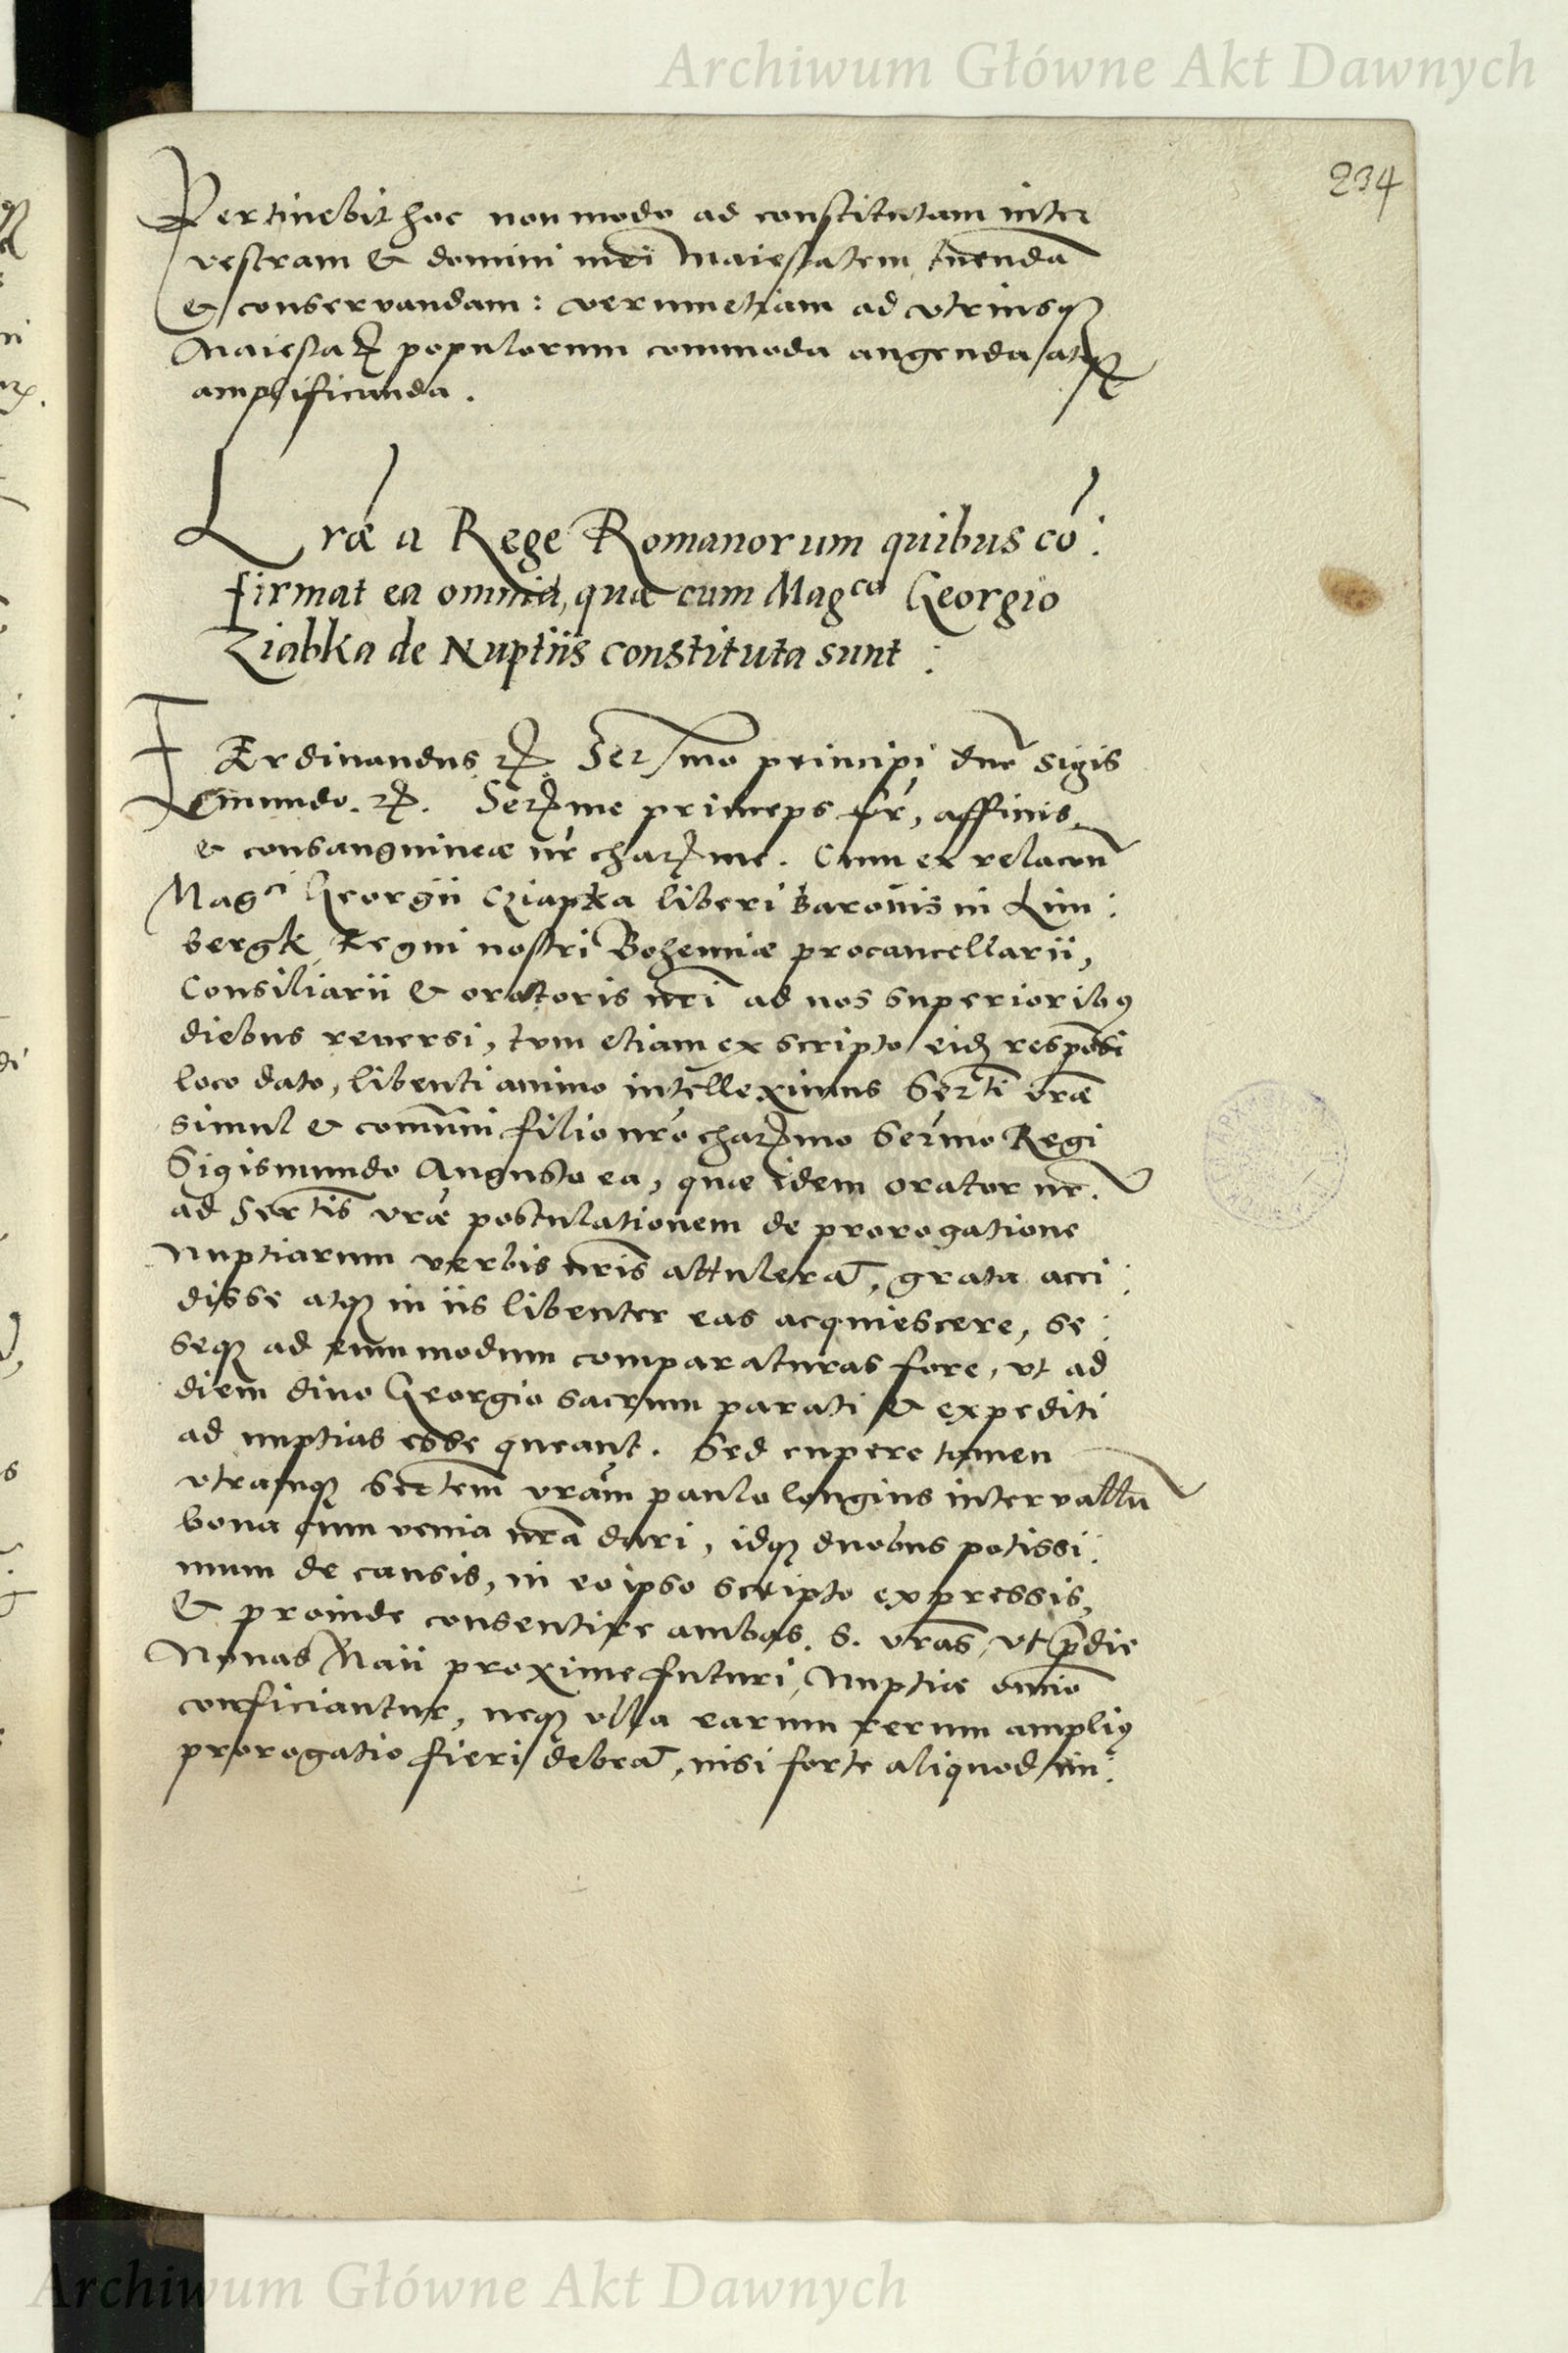 Archiwum Główne Akt Dawnych
234
Pertinebit hoc non modo ad constitutam inter
vestram & domini mei Maiestatem tuendā
& conservandam: verumetiam ad vtriusqꝫ
Maiestatꝭ populorum commoda augenda atqꝫ
amplificanda.
Lrǽ a Rege Romanorum quibus cō:
firmat ea omnia, quæ cum Magco Georgio
Ziabka de Nuptiis constituta sunt:
FErdinandus ꝛc. Serssmo principi dno Sigis
mundo. ꝛc. Serssme princeps fr, affinis,
& consanguineæ nr charssme. Cum ex relacõn
Magci Georgii Cziapka liberi baronis in Lim:
bergk Regni nostri Bohemiæ procancellarii,
Consiliarii & oratoris nri ad nos superioribꝰ
diebus reuersi, tum etiam ex scripto eidꝫ respõsi
loco dato, libenti animo intelleximus Serti vræ
simul & commūi filio nro charssmo Sermo Regi
Sigismundo Augusto ea, quæ idem orator nr.
ad Sertis vræ postulationem de prorogatione
Nuptiarum verbis nris attulerat, grata acci:
disse atqꝫ in iis libenter eas acquiescere, se:
seqꝫ ad eum modum comparaturas fore, vt ad
diem diuo Georgio sacrum parati & expediti
ad nuptias esse queant. Sed cupere tamen
vtramqꝫ Sertem vram paulo longius intervallū
bona cum venia nra dari, idqꝫ duobus potissi:
mum de causis, in eo ipso scripto expressis,
& proinde consentire ambas. S. vras, vt pridie
Nonas Maii proxime futuri, Nuptiæ omnio
conficiantur, neqꝫ vlla earum rerum ampliꝰ
prorogatio fieri debeat, nisi forte aliquod im:
Archiwum Główne Akt Dawnych